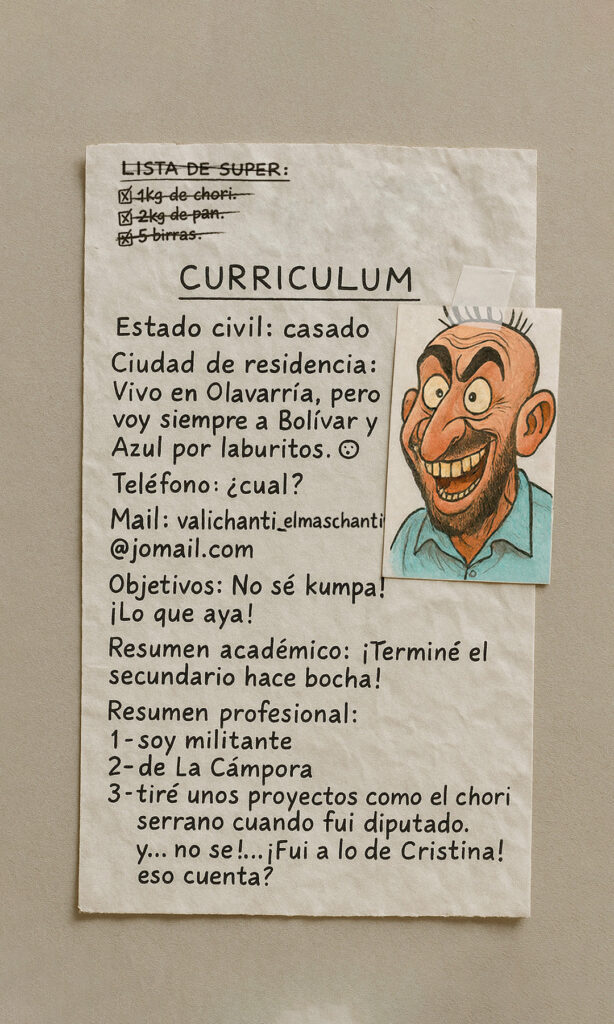 LISTA DE SUPER:
1kg de chori.
2kg de pan.
5 birras.
CURRICULUM
Estado civil: casado
Ciudad de residencia:
Vivo en Olavarría, pero
voy siempre a Bolívar y
Azul por laburitos.
Teléfono: ¿cual?
Mail: valichanti_elmaschanti
@jomail.com
Objetivos: No sé kumpa!
¡Lo que aya!
Resumen académico: ¡Terminé el
secundario hace bocha!
Resumen profesional:
1-soy militante
2-de La Cámpora
3-tiré unos proyectos como el chori
serrano cuando fui diputado.
y... no se!...¡Fui a lo de Cristina!
eso cuenta?